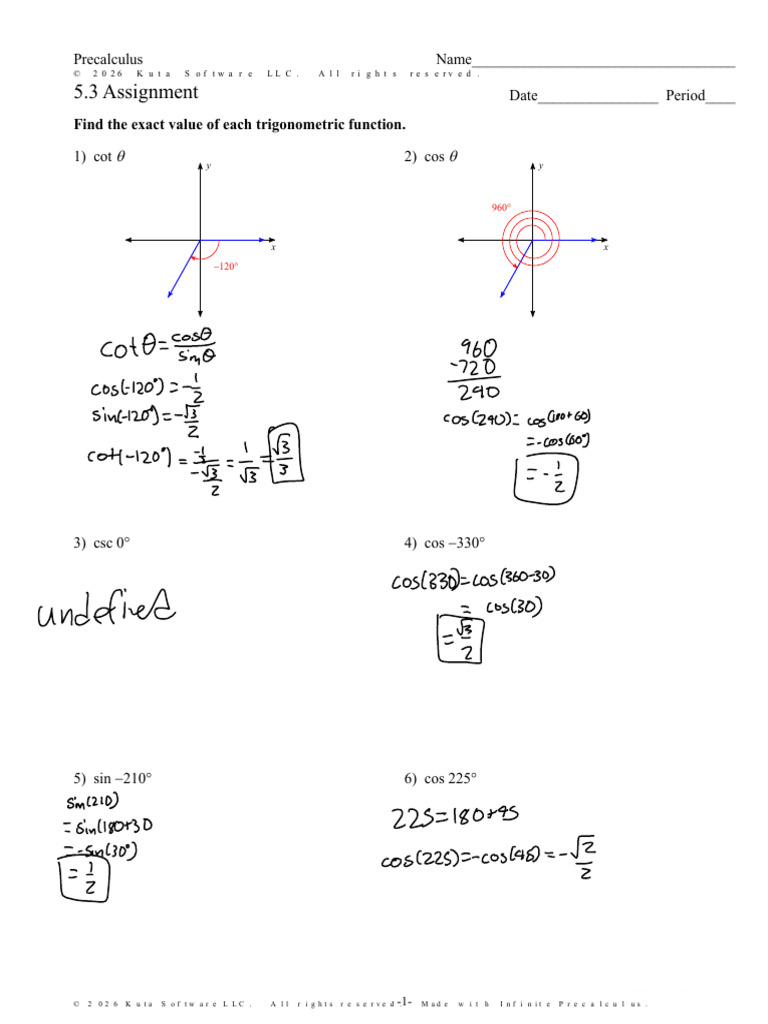 Precalculus Name___________________________________
© 2026 Kuta Software LLC. All rights reserved.
5.3 Assignment Date________________ Period____
Find the exact value of each trigonometric function.
1) cot θ
y
x
−120°
cotθ = cosθ/sinθ
cos(-120°) = -1/2
sin(-120°) = -√3/2
cot(-120°) = (-1/2)/(-√3/2) = 1/√3 = √3/3
2) cos θ
y
x
960°
960
-720
240
cos(240) = cos(180+60)
= -cos(60°)
= -1/2
3) csc 0°
undefined
4) cos −330°
cos(330) = cos(360-30)
= cos(30)
= √3/2
5) sin −210°
sin(210)
= sin(180+30
= -sin(30°)
= 1/2
6) cos 225°
225 = 180+45
cos(225) = -cos(45) = -√2/2
© 2026 Kuta Software LLC. All rights reserved. -1- Made with Infinite Precalculus.